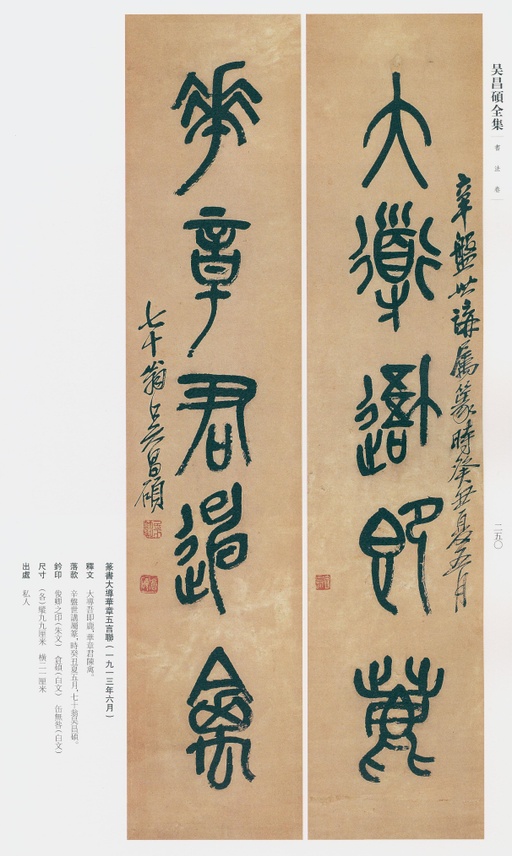 吴昌碩全集
書法卷
二五〇
辛盤世講屬篆時癸丑夏五月
大導吾即鹿
華章君陳禽
七十翁吴昌碩
篆書大導華章五言聯（一九一三年六月）
釋文　大導吾即鹿，華章君陳禽。
落款　辛盤世講屬篆，時癸丑夏五月，七十翁吴昌碩。
鈐印　俊卿之印（朱文）　倉碩（白文）　缶無咎（白文）
尺寸　（各）縱九九厘米　橫二一厘米
出處　私人